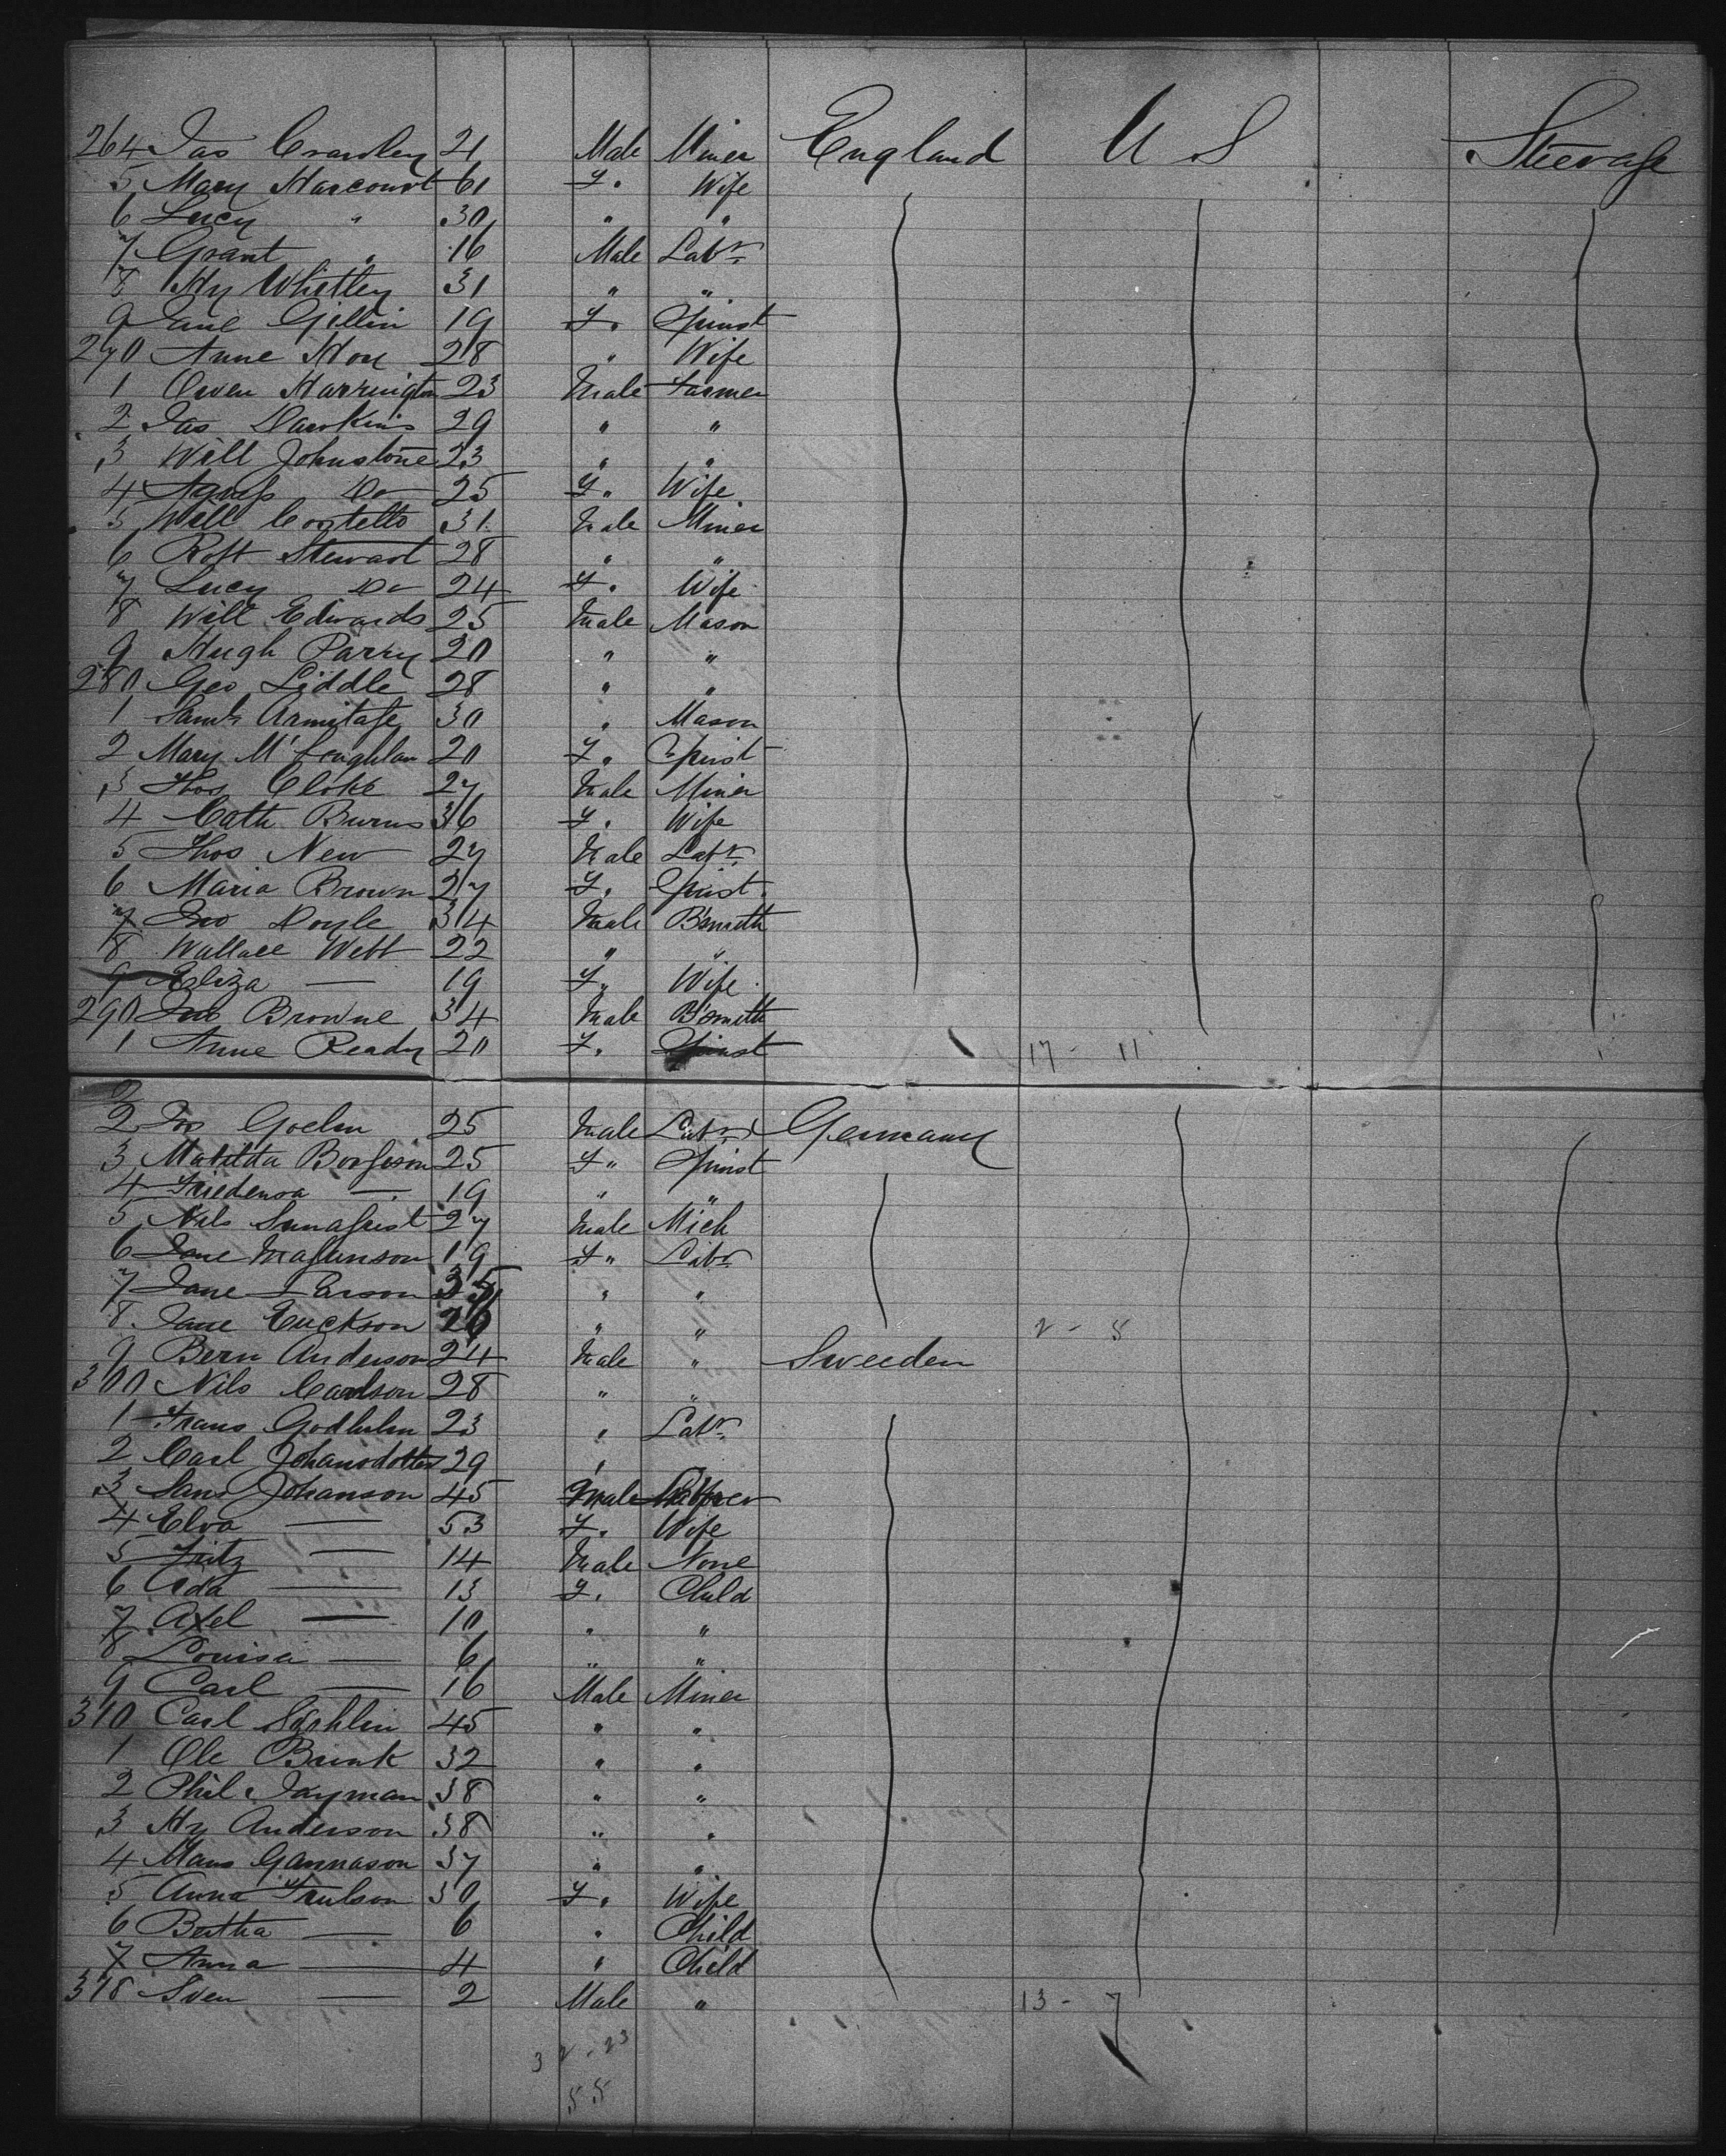 264 Jas Crawley 21 Male Miner England U S Steerage
5 Mary Harcourt 61 F. Wife
6 Lucy " 30 " "
7 Grant " 16 Male Labr
8 Hy Whitley 31 " "
9 Jane Gillin 19 F. Spinst
270 Anne Hoy 28 " Wife
1 Owen Harrington 23 Male Farmer
2 Jas Dawkins 29 " "
3 Will Johnstone 23 " "
4 Agness Do 25 F. Wife
5 Will Costello 31 Male Miner
6 Robt Stewart 28 " "
7 Lucy Do 24 F. Wife
8 Will Edwards 25 Male Mason
9 Hugh Parry 20 " "
280 Geo Liddle 28 " "
1 Saml Armitage 30 " Mason
2 Mary McLoughlan 20 F. Spinst
3 Thos Cloke 27 Male Miner
4 Cath Burns 36 F. Wife
5 Thos New 27 Male Labr
6 Maria Brown 27 F. Spinst
7 Jno Doyle 34 Male Bsmith
8 Wallace Webt 22 " "
9 Eliza — 19 F. Wife
290 Jno Browne 34 Male Bsmith
1 Anne Ready 20 F. Spinst 17 - 11
2 Jos Goelm 25 Male Labr Germany
3 Matilda Borgeson 25 F " Spinst
4 — 19 " "
5 Nils 27 Male Mich
6 Jane Magunson 19 F " Labr
7 Jane Larson 35 " "
8 Jane Erickson 26 " " 2 - 5
9 Bern Anderson 24 Male " Sweeden
300 Nils Carlson 28 " "
1 Frans Godhelm 23 " Labr
2 Carl Johansdotter 29 "
3 Johanson 45 Male
4 Elva — 53 F. Wife
5 Fritz — 14 Male None
6 Ada — 13 F. Child
7 Axel — 10 " "
8 Louisa — 6 " "
9 Carl — 16 Male Miner
310 Carl 45 " "
1 Ole Brink 32 " "
2 Phil Jayman 38 " "
3 Hy Anderson 38 " "
4 Mans Gannason 37 " "
5 Anna Trulson 30 F. Wife
6 Bertha — 6 " Child
7 Anna — 4 " Child
318 Sven — 2 Male " 13 - 7
32 - 23
55